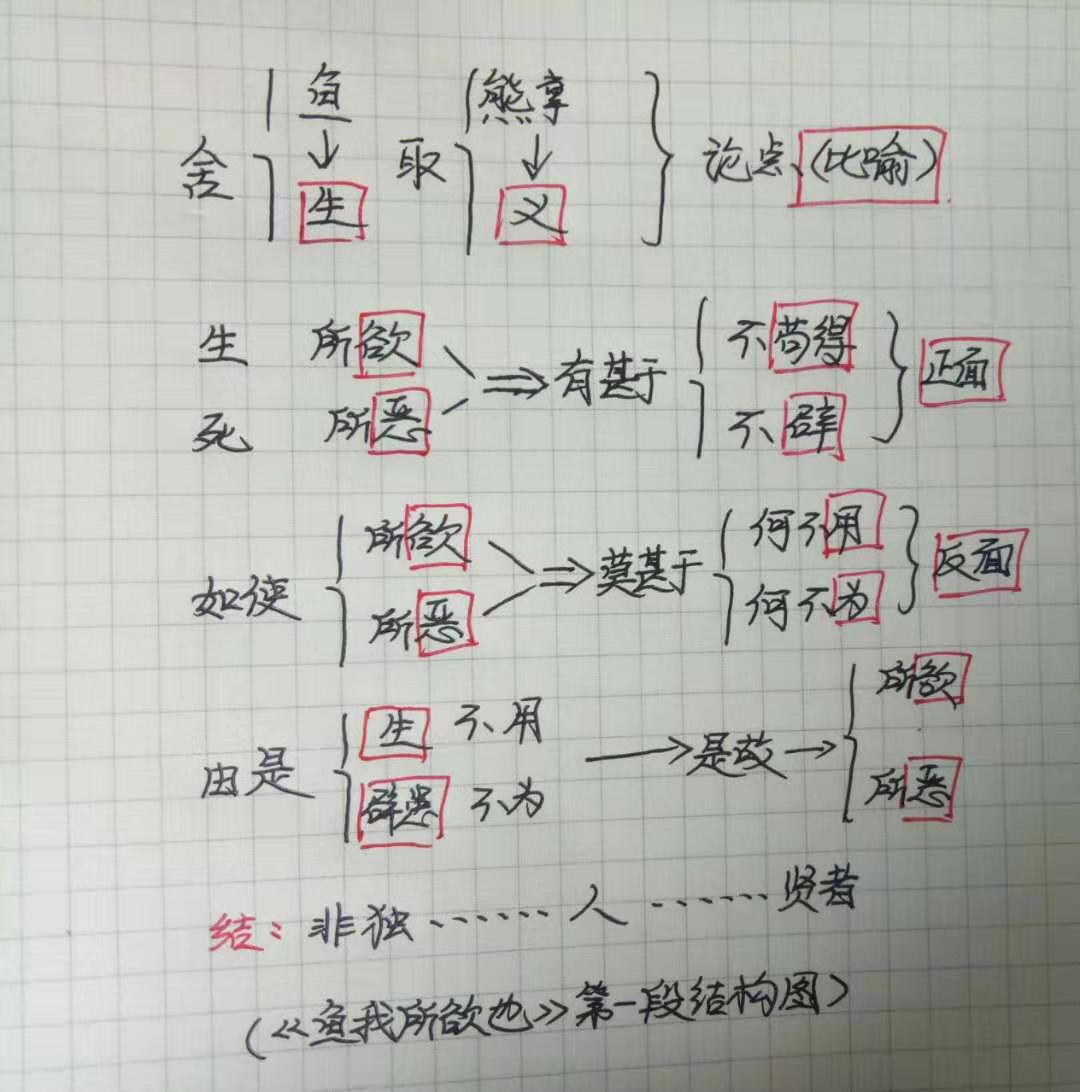 鱼 熊享
舍 ↓ 取 ↓ 论点(比喻)
生 义
生 所欲 ⇒ 有甚于 不苟得 正面
死 所恶 不辟
如使 所欲 ⇒ 莫甚于 何不用 反面
所恶 何不为
由是 生 不用 → 是故 → 所欲
辟患 不为 所恶
结: 非独……人……贤者
(《鱼我所欲也》第一段结构图)